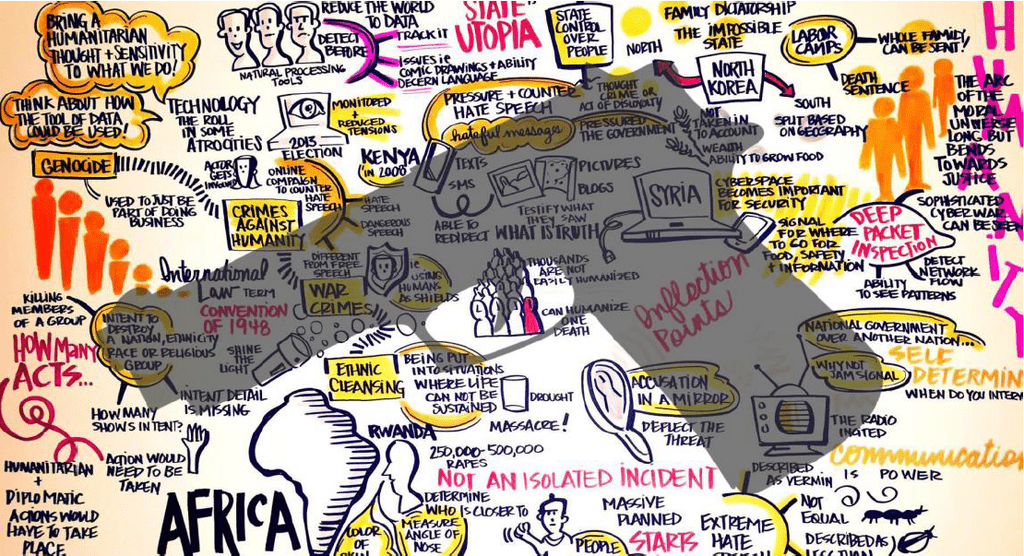 BRING A
HUMANITARIAN
THOUGHT + SENSITIVITY
TO WHAT WE DO!
THINK ABOUT HOW
THE TOOL OF DATA
COULD BE USED!
REDUCE THE WORLD
TO DATA
DETECT
BEFORE
TRACK IT
ISSUES IE
COMIC DRAWINGS + ABILITY
DECERN LANGUAGE
NATURAL PROCESSING
TOOLS
STATE
UTOPIA
STATE
CONTROL
OVER
PEOPLE
NORTH
FAMILY DICTATORSHIP
THE IMPOSSIBLE
STATE
NORTH
KOREA
SOUTH
SPLIT BASED
ON GEOGRAPHY
LABOR
CAMPS
WHOLE FAMILY
CAN BE SENT!
DEATH
SENTENCE
THE ARC
OF THE
MORAL
UNIVERSE
LONG BUT
BENDS
TOWARDS
JUSTICE
TECHNOLOGY
THE ROLL
IN SOME
ATROCITIES
2013
ELECTION
MONITORED
+
REDUCED
TENSIONS
PRESSURE + COUNTER
HATE SPEECH
hateful messages
THOUGHT
CRIME OR
ACT OF DISLOYALTY
PRESSURED
THE GOVERNMENT
NOT
TAKEN IN
TO ACCOUNT
WEALTH
ABILITY TO GROW FOOD
GENOCIDE
USED TO JUST BE
PART OF DOING
BUSINESS
ACTOR
GETS
INVOLVED
ONLINE
CAMPAIGN
TO COUNTER
HATE
SPEECH
KENYA
IN 2008
HATE
SPEECH
DANGEROUS
SPEECH
TEXTS
SMS
ABLE TO
REDIRECT
PICTURES
BLOGS
TESTIFY WHAT
THEY SAW
WHAT IS TRUTH
SYRIA
CYBERSPACE
BECOMES IMPORTANT
FOR SECURITY
SIGNAL
FOR WHERE
TO GO FOR
FOOD, SAFETY
+ INFORMATION
DEEP
PACKET
INSPECTION
SOPHISTICATED
CYBER WAR
CAN BE SEEN
DETECT
NETWORK
FLOW
ABILITY
TO SEE PATTERNS
CRIMES
AGAINST
HUMANITY
DIFFERENT
FROM FREE
SPEECH
WAR
CRIMES
IE
USING
HUMANS
AS SHIELDS
THOUSANDS
ARE NOT
EASILY HUMANIZED
CAN HUMANIZE
ONE
DEATH
Inflection
Points
International
Law TERM
CONVENTION
OF 1948
KILLING
MEMBERS
OF A GROUP
INTENT TO
DESTROY
A NATION, ETHNICITY
RACE OR RELIGIOUS
GROUP
SHINE
THE
LIGHT
HOW MANY
ACTS...
HOW MANY
SHOWS INTENT?
INTENT DETAIL
IS MISSING
ETHNIC
CLEANSING
BEING PUT
INTO SITUATIONS
WHERE LIFE
CAN NOT BE
SUSTAINED
DROUGHT
MASSACRE!
ACCUSATION
IN A MIRROR
DEFLECT THE
THREAT
NATIONAL GOVERNMENT
OVER ANOTHER NATION...
WHY NOT
JAM SIGNAL
SELF
DETERMIN
WHEN DO YOU INTERV
THE RADIO
INCITED
COMMUNICATION
IS POWER
DESCRIBED
AS VERMIN
NOT
EQUAL
DESCRIBED AS
HUMANITARIAN
+
DIPLOMATIC
ACTIONS WOULD
HAVE TO TAKE
PLACE
ACTION WOULD
NEED TO BE
TAKEN
AFRICA
RWANDA
250,000-500,000
RAPES
NOT AN ISOLATED INCIDENT
DETERMINE
WHO IS CLOSER TO
MEASURE
ANGLE OF
NOSE
COLOR
OF
MASSIVE
PLANNED
STARTS
PEOPLE
EXTREME
HATE
HUMANITY